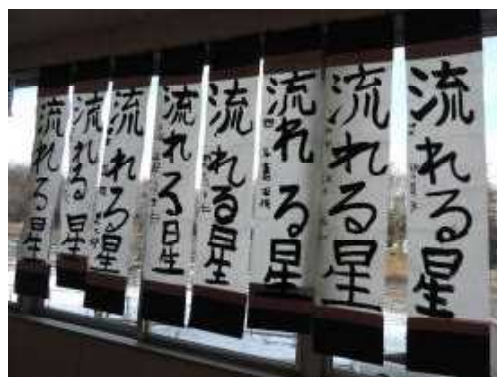 流れる星
流れる星
流れる星
流れる星
流れる星
流れる星
流れる星
流れる星